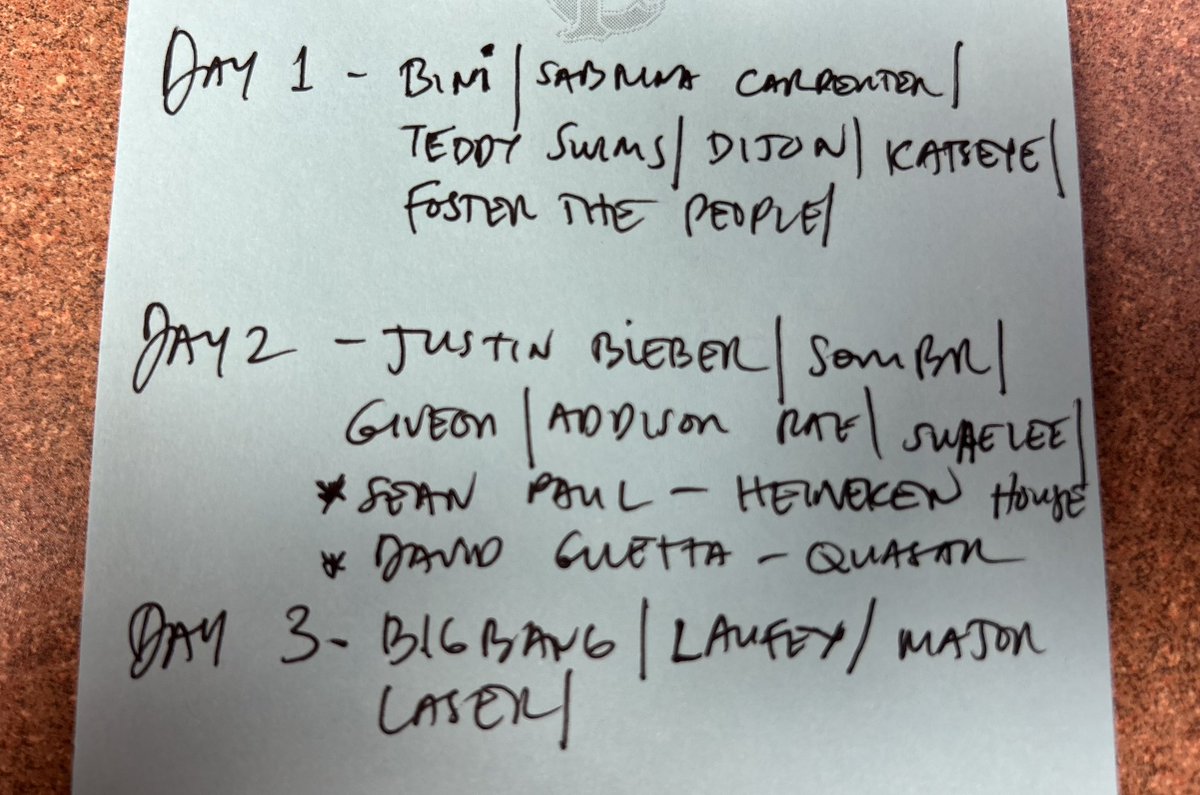 DAY 1 - BINI | SABRINA CARPENTER |
TEDDY SWIMS | DIJON | KATSEYE |
FOSTER THE PEOPLE |
DAY 2 - JUSTIN BIEBER | SOMBR |
GIVEON | ADDISON RAE | SWAELEE |
* SEAN PAUL - HEINEKEN HOUSE
* DAVID GUETTA - QUASAR
DAY 3 - BIGBANG | LAUFEY / MAJOR
LASER |